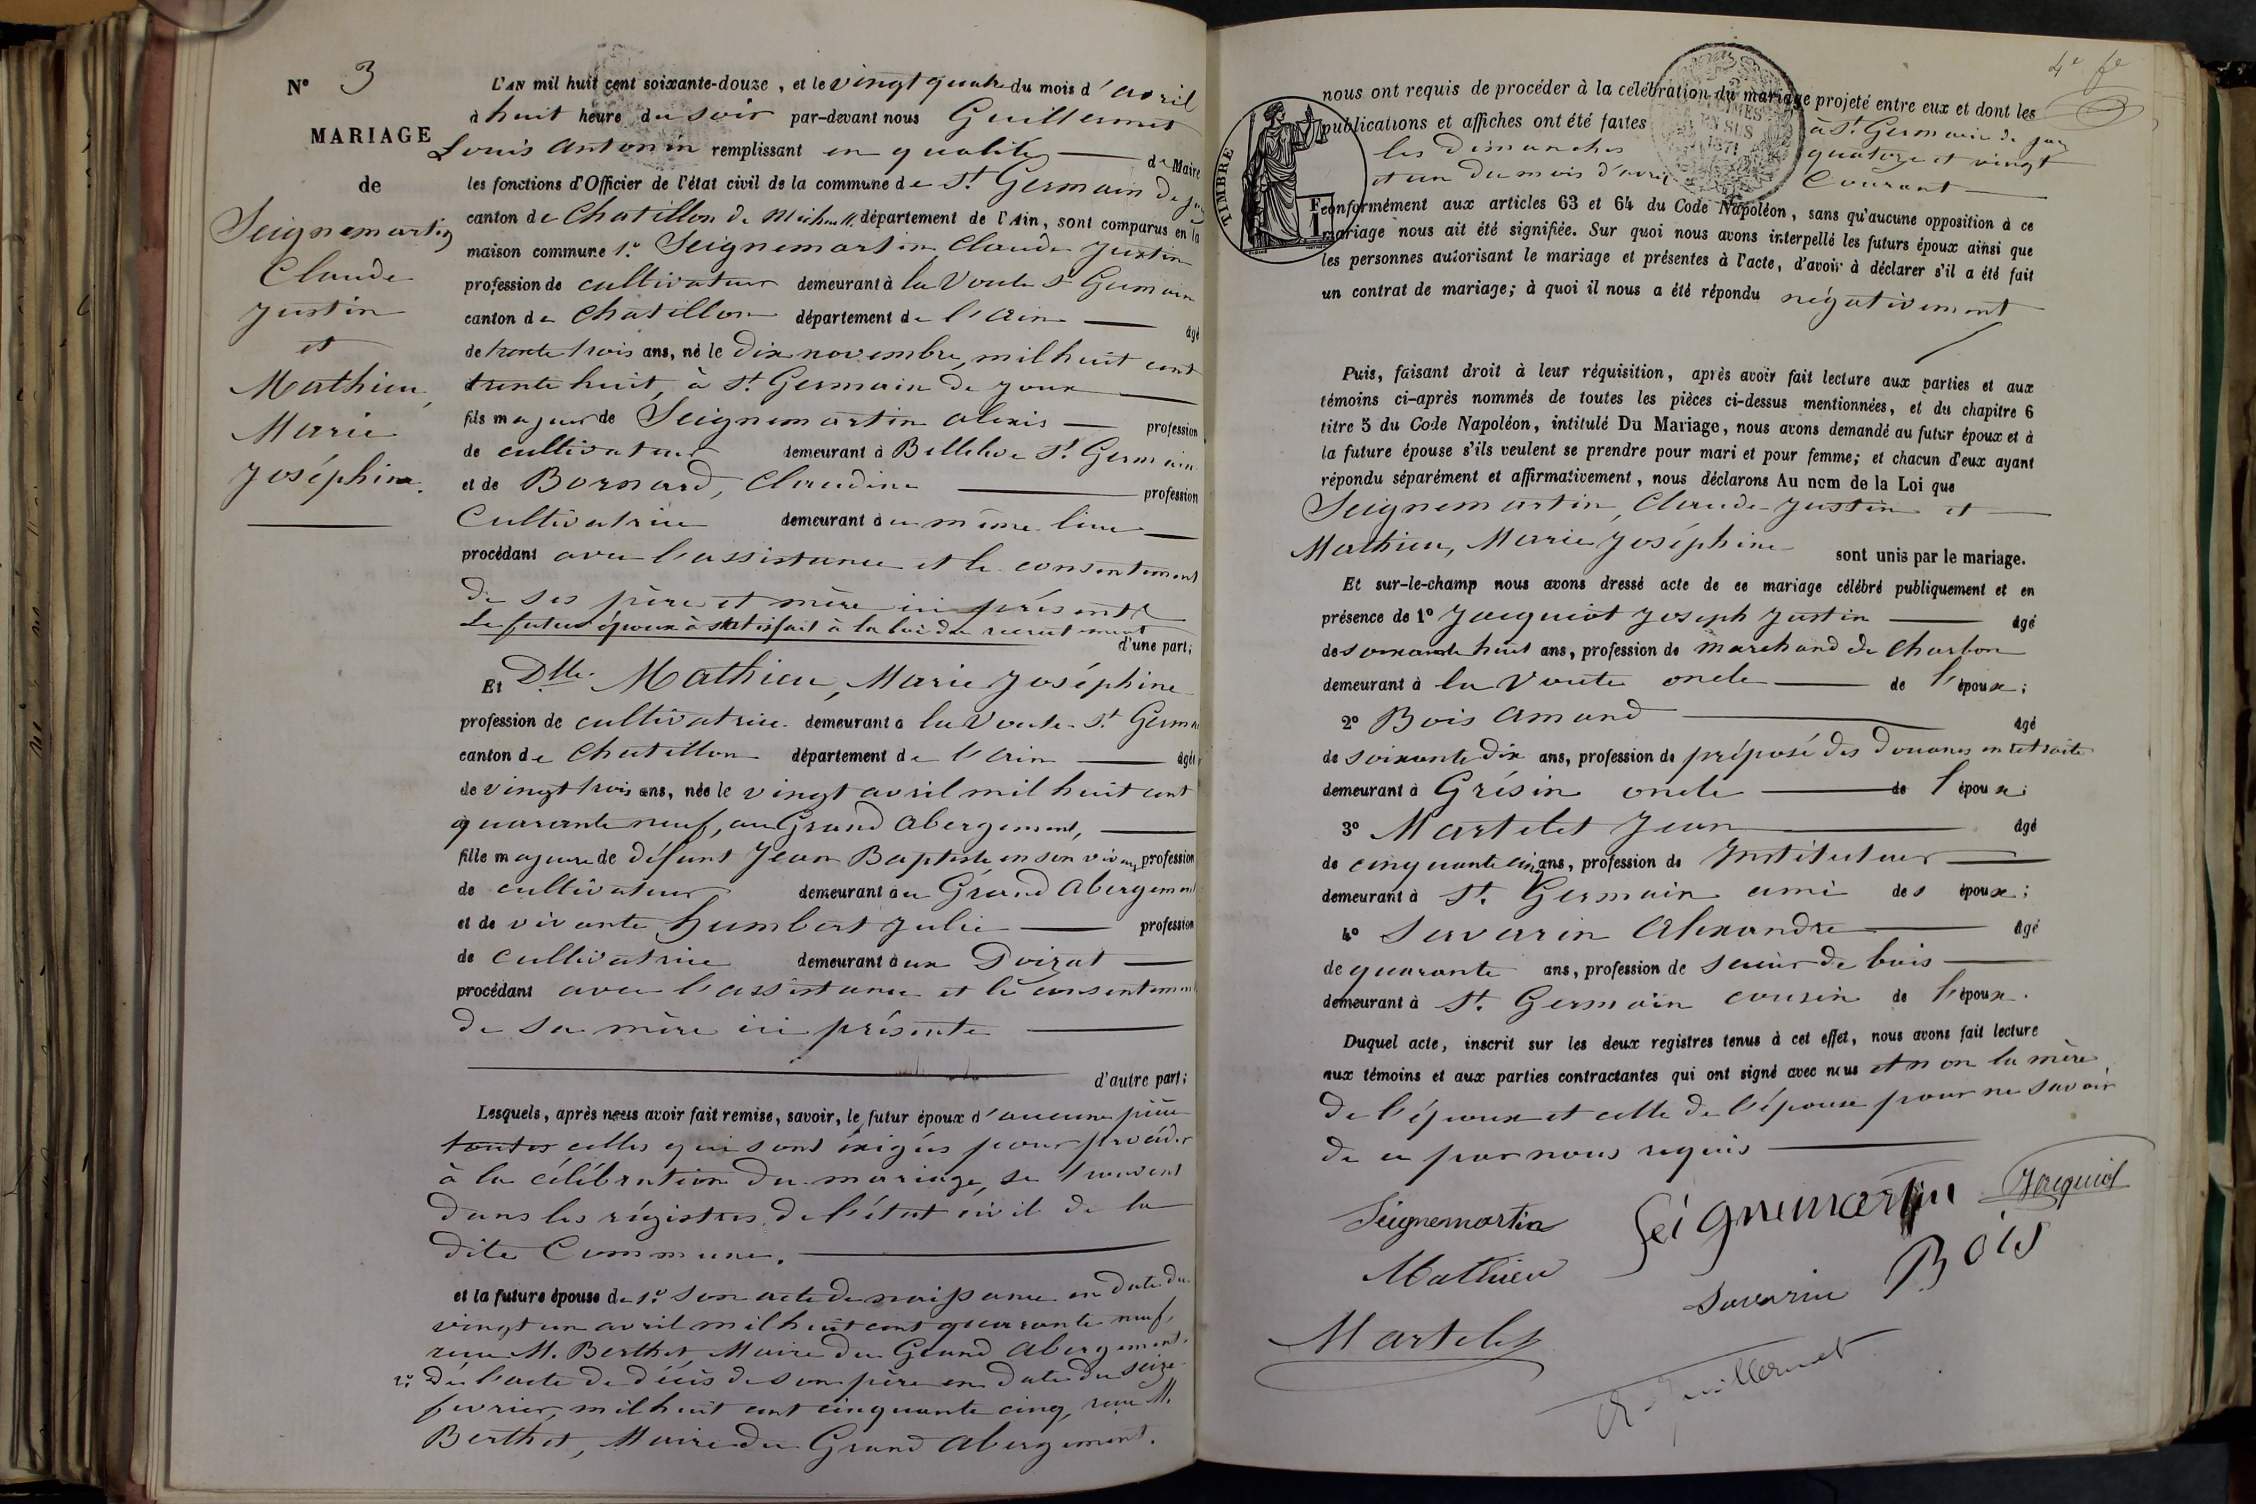 N° 3
MARIAGE
de
Seignemartin
Claude
Justin
et
Mathieu,
Marie
Joséphine.
L'AN mil huit cent soixante-douze, et le vingt quatre du mois d'avril
à huit heure du soir par-devant nous Guillermet
Louis Antonin remplissant en qualité de Maire
les fonctions d'Officier de l'état civil de la commune de St Germain de
canton de Chatillon de Michaille département de l'Ain, sont comparus en la
maison commune 1° Seignemartin Claude Justin
profession de cultivateur demeurant à la Voute St Germain
canton de Chatillon département de l'Ain âgé
de trente trois ans, né le dix novembre, mil huit cent
trente huit, à St Germain de Joux
fils majeur de Seignemartin Alexis profession
de cultivateur demeurant à Belleleve St Germain
et de Bornard, Claudine profession
Cultivatrice demeurant au même lieu
procédant avec l'assistance et le consentement
de ses père et mère ici présents
Le futur époux à satisfait à la loi du recrutement
d'une part;
Et Dlle Mathieu, Marie Joséphine
profession de cultivatrice demeurant à la Voute St Germa
canton de Chatillon département de l'Ain âgée
de vingt trois ans, née le vingt avril mil huit cent
quarante neuf, au Grand Abergement,
fille majeure de défunt Jean Baptiste en son vivant profession
de cultivateur demeurant au Grand Abergement
et de vivante Humbert Julie profession
de cultivatrice demeurant au Poizat
procédant avec l'assistance et le consentement
de sa mère ici présente
d'autre part;
Lesquels, après nous avoir fait remise, savoir, le futur époux d'aucune pièce
toutes celles qui sont éxigées pour procéder
à la célébration du mariage, se trouvent
dans les régistres de l'état civil de la
dite Commune.
et la future épouse de 1° son acte de naissance en date du
vingt un avril mil huit cent quarante neuf,
reçu M. Berthet, Maire du Grand Abergement.
2° De l'acte de décès de son père en date du seize
février, mil huit cent cinquante cinq, reçu M.
Berthet, Maire du Grand Abergement.
4e fe
nous ont requis de procéder à la célébration du mariage projeté entre eux et dont les
publications et affiches ont été faites à St Germain de Joux
les dimanches quatorze et vingt
et un du mois d'avril Courant
TIMBRE
1871
conformément aux articles 63 et 64 du Code Napoléon, sans qu'aucune opposition à ce
mariage nous ait été signifiée. Sur quoi nous avons interpellé les futurs époux ainsi que
les personnes autorisant le mariage et présentes à l'acte, d'avoir à déclarer s'il a été fait
un contrat de mariage; à quoi il nous a été répondu négativement
Puis, faisant droit à leur réquisition, après avoir fait lecture aux parties et aux
témoins ci-après nommés de toutes les pièces ci-dessus mentionnées, et du chapitre 6
titre 5 du Code Napoléon, intitulé Du Mariage, nous avons demandé au futur époux et à
la future épouse s'ils veulent se prendre pour mari et pour femme; et chacun d'eux ayant
répondu séparément et affirmativement, nous déclarons Au nom de la Loi que
Seignemartin, Claude Justin et
Mathieu, Marie Joséphine sont unis par le mariage.
Et sur-le-champ nous avons dressé acte de ce mariage célébré publiquement et en
présence de 1° Jacquiot Joseph Justin âgé
de soixante huit ans, profession de marchand de charbon
demeurant à la Voute oncle de l'époux;
2° Bois Amand âgé
de soixante dix ans, profession de préposé des douanes en retraite
demeurant à Grésin oncle de l'époux;
3° Martelet Jean âgé
de cinquante cinq ans, profession de Instituteur
demeurant à St Germain ami des époux;
4° Savarin Alexandre âgé
de quarante ans, profession de scieur de bois
demeurant à St Germain cousin de l'époux.
Duquel acte, inscrit sur les deux registres tenus à cet effet, nous avons fait lecture
aux témoins et aux parties contractantes qui ont signé avec nous et non la mère
de l'époux et celle de l'épouse pour ne savoir
de ce par nous requis
Seignemartin Seignemartin Jacquiot
Mathieu Savarin Bois
Martelet
Guillermet